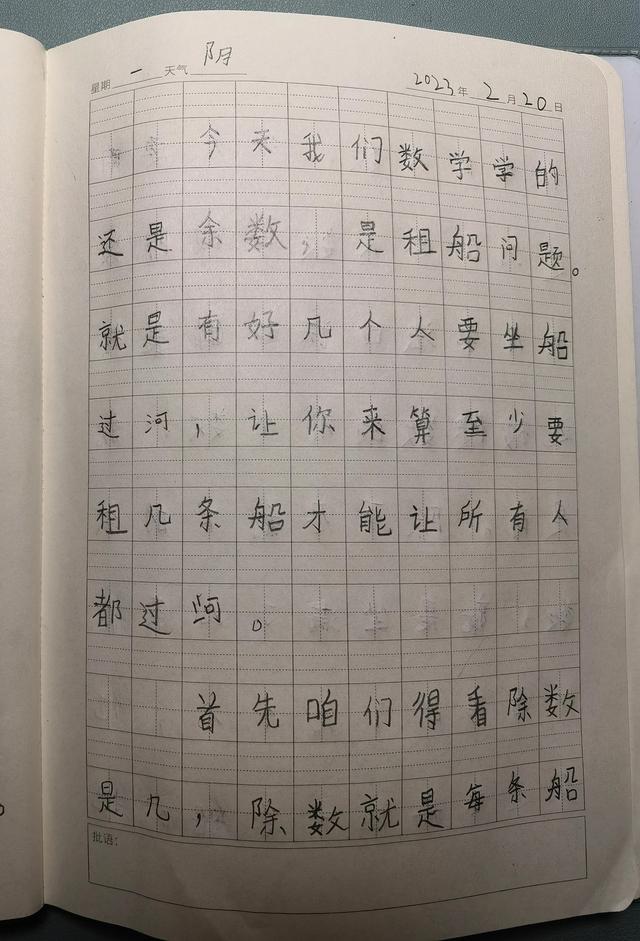 星期 一 天气 阴 2023年 2月20日
今天我们数学学的
还是余数，是租船问题。
就是有好几个人要坐船
过河，让你来算至少要
租几条船才能让所有人
都过河。
首先咱们得看除数
是几，除数就是每条船
批语：